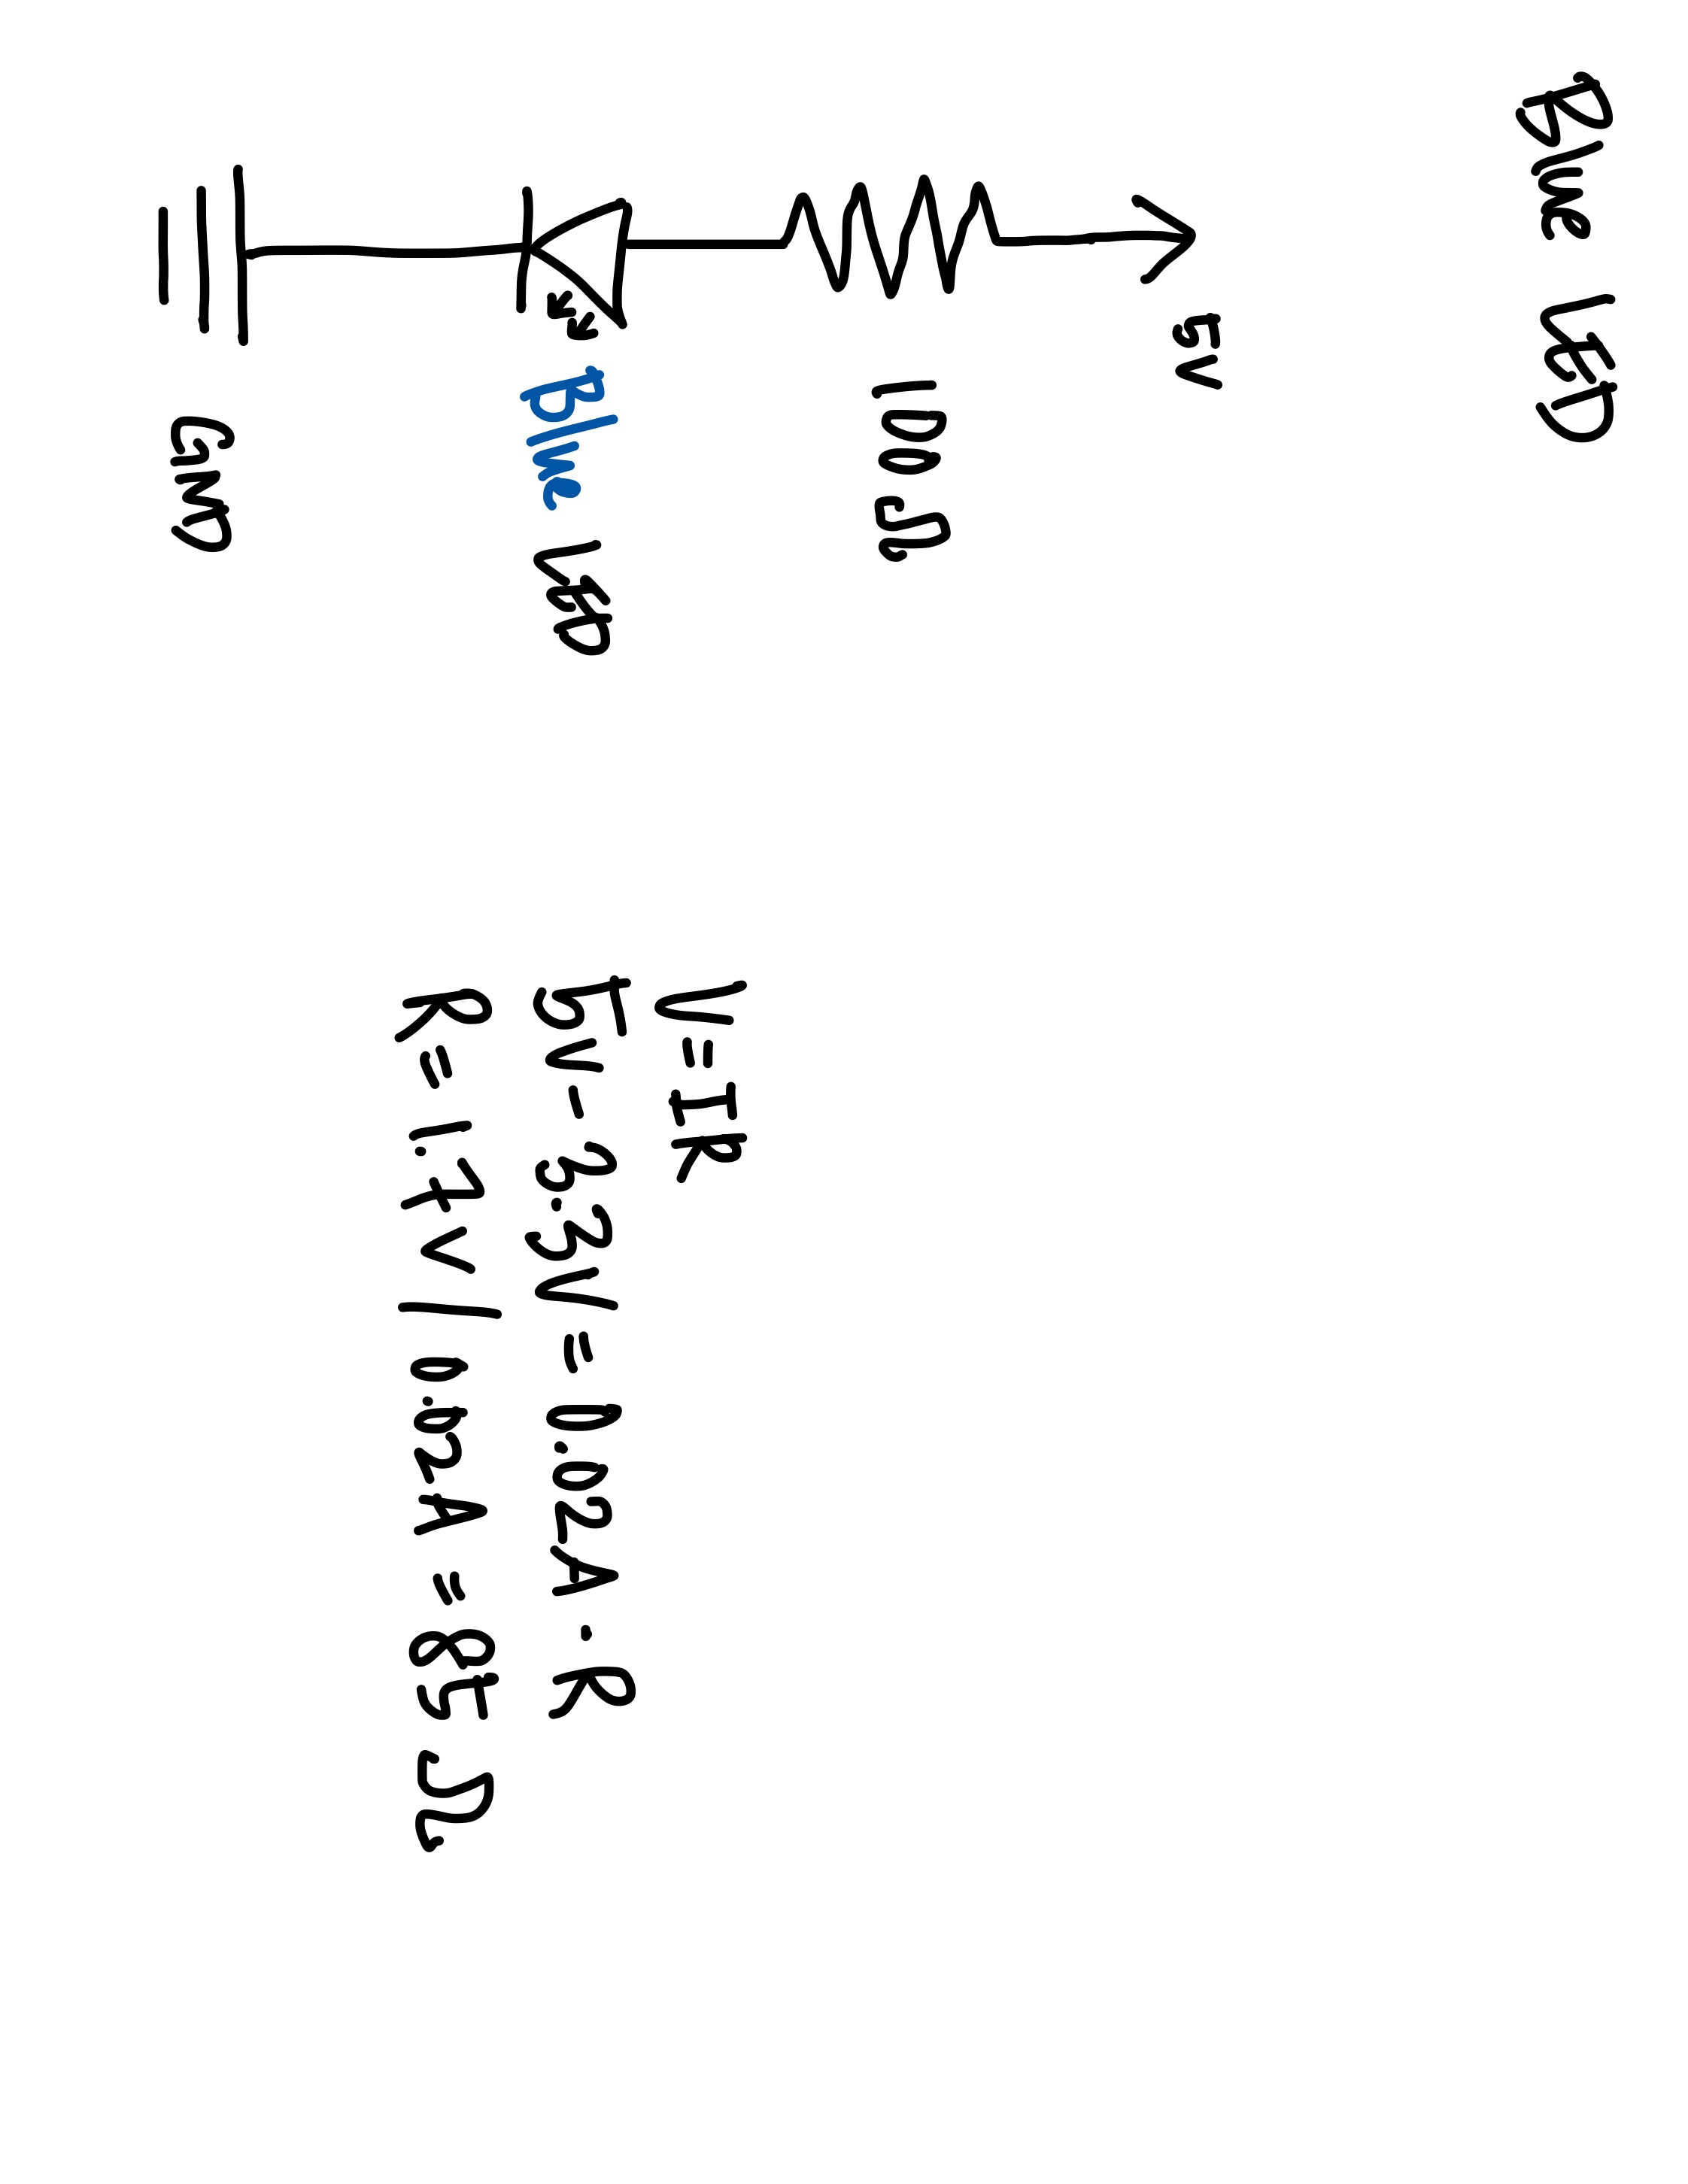 Blue LED
5V
100 Ω
Blue LED
GND
V=IR
5V-3.3V=0.02A·R
R=1.7V/0.02A=85Ω